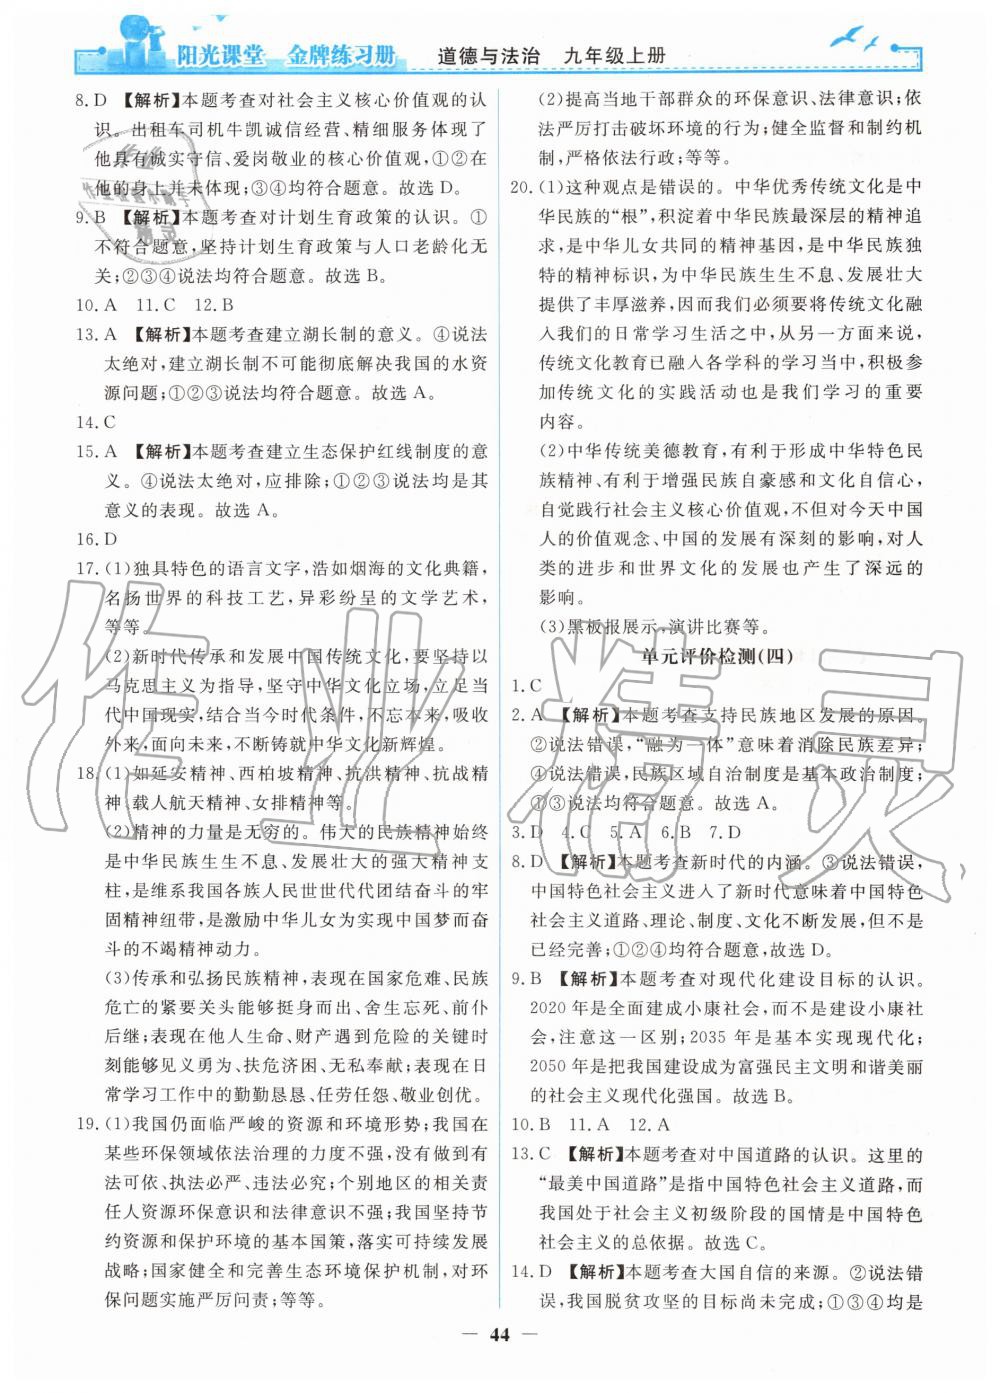 阳光课堂 金牌练习册 道德与法治 九年级上册
8. D 【解析】本题考查对社会主义核心价值观的认
识。出租车司机牛凯诚信经营、精细服务体现了
他具有诚实守信、爱岗敬业的核心价值观,①②在
他的身上并未体现;③④均符合题意。故选 D。
9. B 【解析】本题考查对计划生育政策的认识。①
不符合题意,坚持计划生育政策与人口老龄化无
关;②③④说法均符合题意。故选 B。
10. A 11. C 12. B
13. A 【解析】本题考查建立湖长制的意义。④说法
太绝对,建立湖长制不可能彻底解决我国的水资
源问题;①②③说法均符合题意。故选 A。
14. C
15. A 【解析】本题考查建立生态保护红线制度的意
义。④说法太绝对,应排除;①②③说法均是其
意义的表现。故选 A。
16. D
17. (1)独具特色的语言文字,浩如烟海的文化典籍,
名扬世界的科技工艺,异彩纷呈的文学艺术,
等等。
(2)新时代传承和发展中国传统文化,要坚持以
马克思主义为指导,坚守中华文化立场,立足当
代中国现实,结合当今时代条件,不忘本来,吸收
外来,面向未来,不断铸就中华文化新辉煌。
18. (1)如延安精神、西柏坡精神、抗洪精神、抗战精
神、载人航天精神、女排精神等。
(2)精神的力量是无穷的。伟大的民族精神始终
是中华民族生生不息、发展壮大的强大精神支
柱,是维系我国各族人民世世代代团结奋斗的牢
固精神纽带,是激励中华儿女为实现中国梦而奋
斗的不竭精神动力。
(3)传承和弘扬民族精神,表现在国家危难、民族
危亡的紧要关头能够挺身而出、舍生忘死、前仆
后继;表现在他人生命、财产遇到危险的关键时
刻能够见义勇为、扶危济困、无私奉献;表现在日
常学习工作中的勤勤恳恳、任劳任怨、敬业创优。
19. (1)我国仍面临严峻的资源和环境形势;我国在
某些环保领域依法治理的力度不强,没有做到有
法可依、执法必严、违法必究;个别地区的相关责
任人资源环保意识和法律意识不强;我国坚持节
约资源和保护环境的基本国策,落实可持续发展
战略;国家健全和完善生态环境保护机制,对环
保问题实施严厉问责;等等。
(2)提高当地干部群众的环保意识、法律意识;依
法严厉打击破坏环境的行为;健全监督和制约机
制,严格依法行政;等等。
20. (1)这种观点是错误的。中华优秀传统文化是中
华民族的“根”,积淀着中华民族最深层的精神追
求,是中华儿女共同的精神基因,是中华民族独
特的精神标识,为中华民族生生不息、发展壮大
提供了丰厚滋养,因而我们必须要将传统文化融
入我们的日常学习生活之中,从另一方面来说,
传统文化教育已融入各学科的学习当中,积极参
加传统文化的实践活动也是我们学习的重要
内容。
(2)中华传统美德教育,有利于形成中华特色民
族精神、有利于增强民族自豪感和文化自信心,
自觉践行社会主义核心价值观,不但对今天中国
人的价值观念、中国的发展有深刻的影响,对人
类的进步和世界文化的发展也产生了深远的
影响。
(3)黑板报展示,演讲比赛等。
单元评价检测(四)
1. C
2. A 【解析】本题考查支持民族地区发展的原因。
②说法错误,“融为一体”意味着消除民族差异;
④说法错误,民族区域自治制度是基本政治制度;
①③说法均符合题意。故选 A。
3. D 4. C 5. A 6. B 7. D
8. D 【解析】本题考查新时代的内涵。③说法错误,
中国特色社会主义进入了新时代意味着中国特色
社会主义道路、理论、制度、文化不断发展,但不是
已经完善;①②④均符合题意,故选 D。
9. B 【解析】本题考查对现代化建设目标的认识。
2020 年是全面建成小康社会,而不是建设小康社
会,注意这一区别;2035 年是基本实现现代化;
2050 年是把我国建设成为富强民主文明和谐美丽
的社会主义现代化强国。故选 B。
10. B 11. A 12. A
13. C 【解析】本题考查对中国道路的认识。这里的
“最美中国道路”是指中国特色社会主义道路,而
我国处于社会主义初级阶段的国情是中国特色
社会主义的总依据。故选 C。
14. D 【解析】本题考查大国自信的来源。②说法错
误,我国脱贫攻坚的目标尚未完成;①③④均是
44
作业精灵